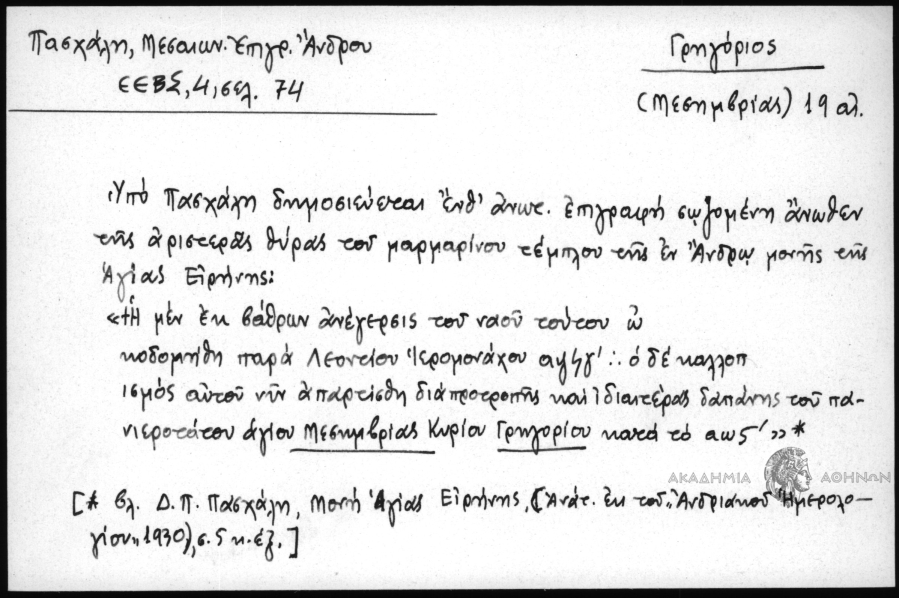 Πασχάλη, Μεσαιων. Ἐπιγρ. Ἄνδρου
ΕΕΒΣ, 4, σελ. 74
Γρηγόριος
(Μεσημβρίας) 19 αἰ.
Ὑπό Πασχάλη δημοσιεύεται ἔνθ' ἀνωτ. ἐπιγραφή σῳζομένη ἄνωθεν
τῆς ἀριστερᾶς θύρας τοῦ μαρμαρίνου τέμπλου τῆς ἐν Ἄνδρῳ μονῆς τῆς
Ἁγίας Εἰρήνης:
«†Ἡ μέν ἐκ βάθρων ἀνέγερσις τοῦ ναοῦ τούτου ὠ
κοδομήθη παρά Λεοντίου Ἱερομονάχου αψϟγ' ∴ ὁ δέ καλλοπ
ισμός αὐτοῦ νῦν ἀπαρτίσθη διά προτροπῆς καί ἰδιαιτέρας δαπάνης τοῦ πα-
νιεροτάτου ἁγίου Μεσημβρίας Κυρίου Γρηγορίου κατά τό αως'»*
ΑΚΑΔΗΜΙΑ ΑΘΗΝΩΝ
[* βλ. Δ. Π. Πασχάλη, Μονή Ἁγίας Εἰρήνης, (Ἀνάτ. ἐκ τοῦ „Ἀνδριακοῦ Ἡμερολο-
γίου„ 1930), σ. 5 κ. ἑξ.]